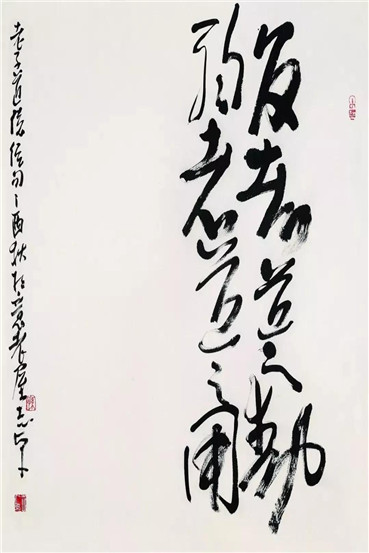 反者道之動
弱者道之用
老子道德经句乙酉秋於